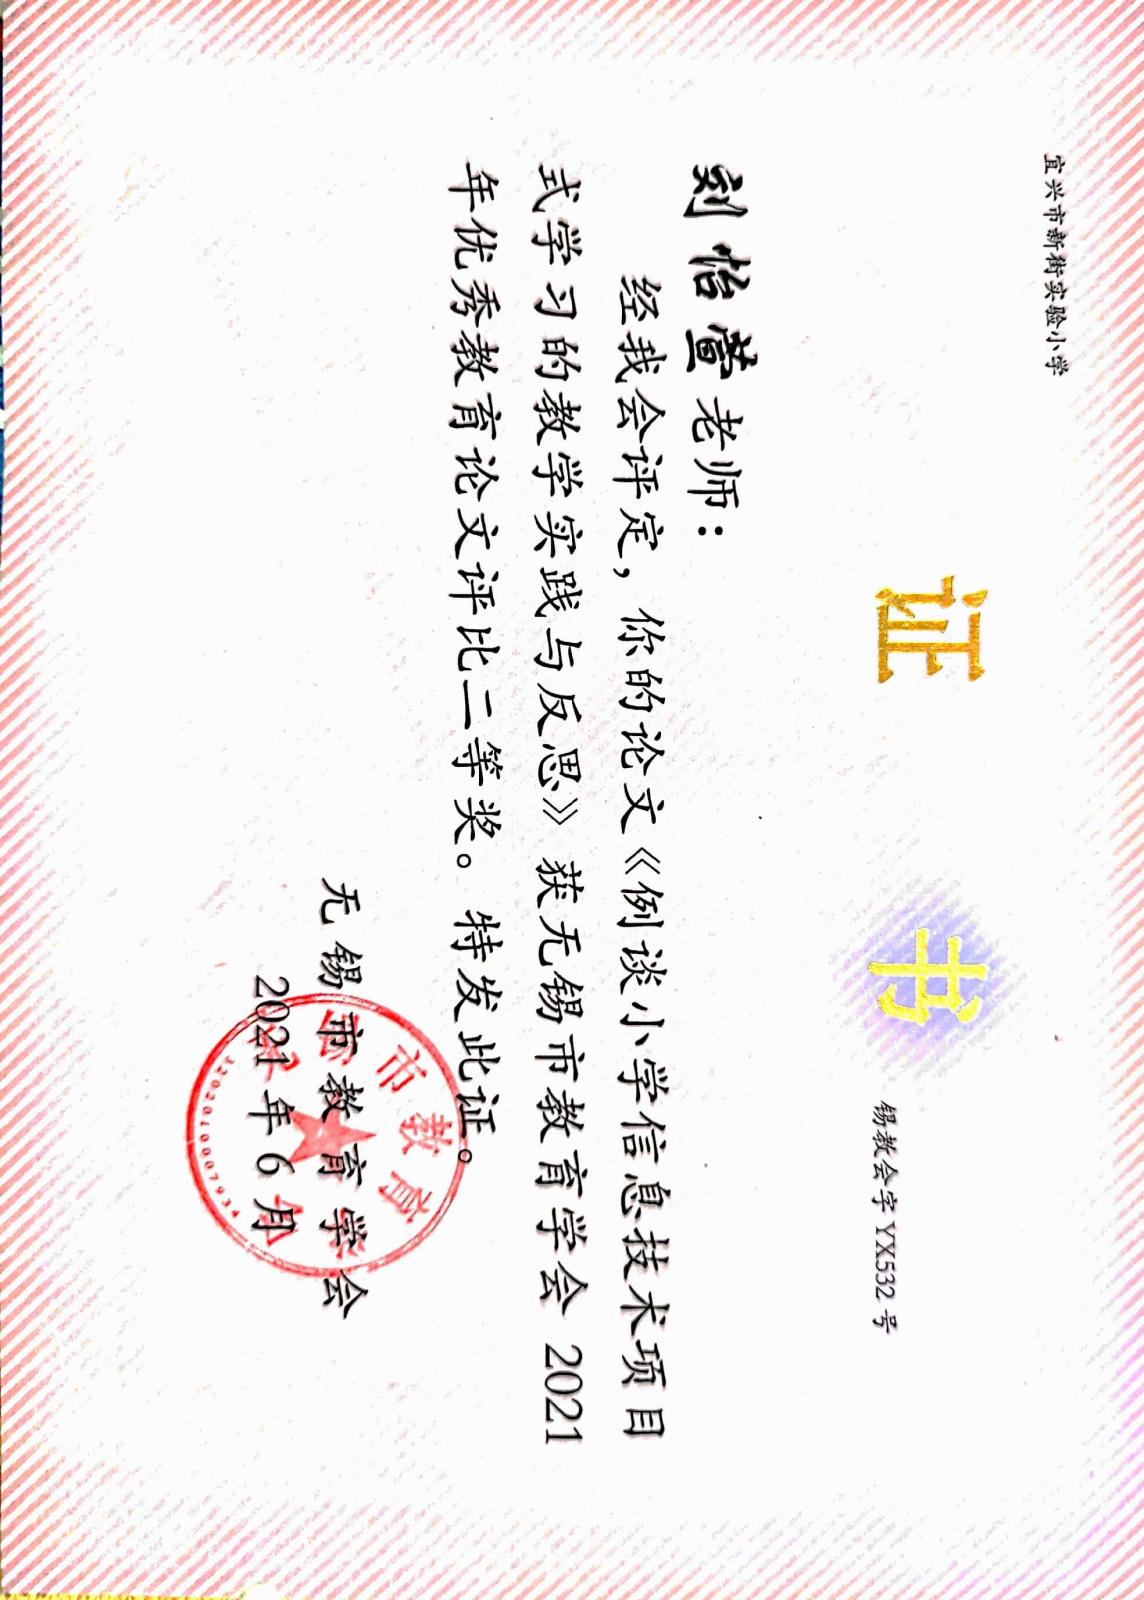 宜兴市新街实验小学
证 书
锡教会字 YX532 号
刘怡萱老师：
经我会评定，你的论文《例谈小学信息技术项目
式学习的教学实践与反思》获无锡市教育学会 2021
年优秀教育论文评比二等奖。特发此证。
无锡市教育学会
2021 年 6 月
市教育